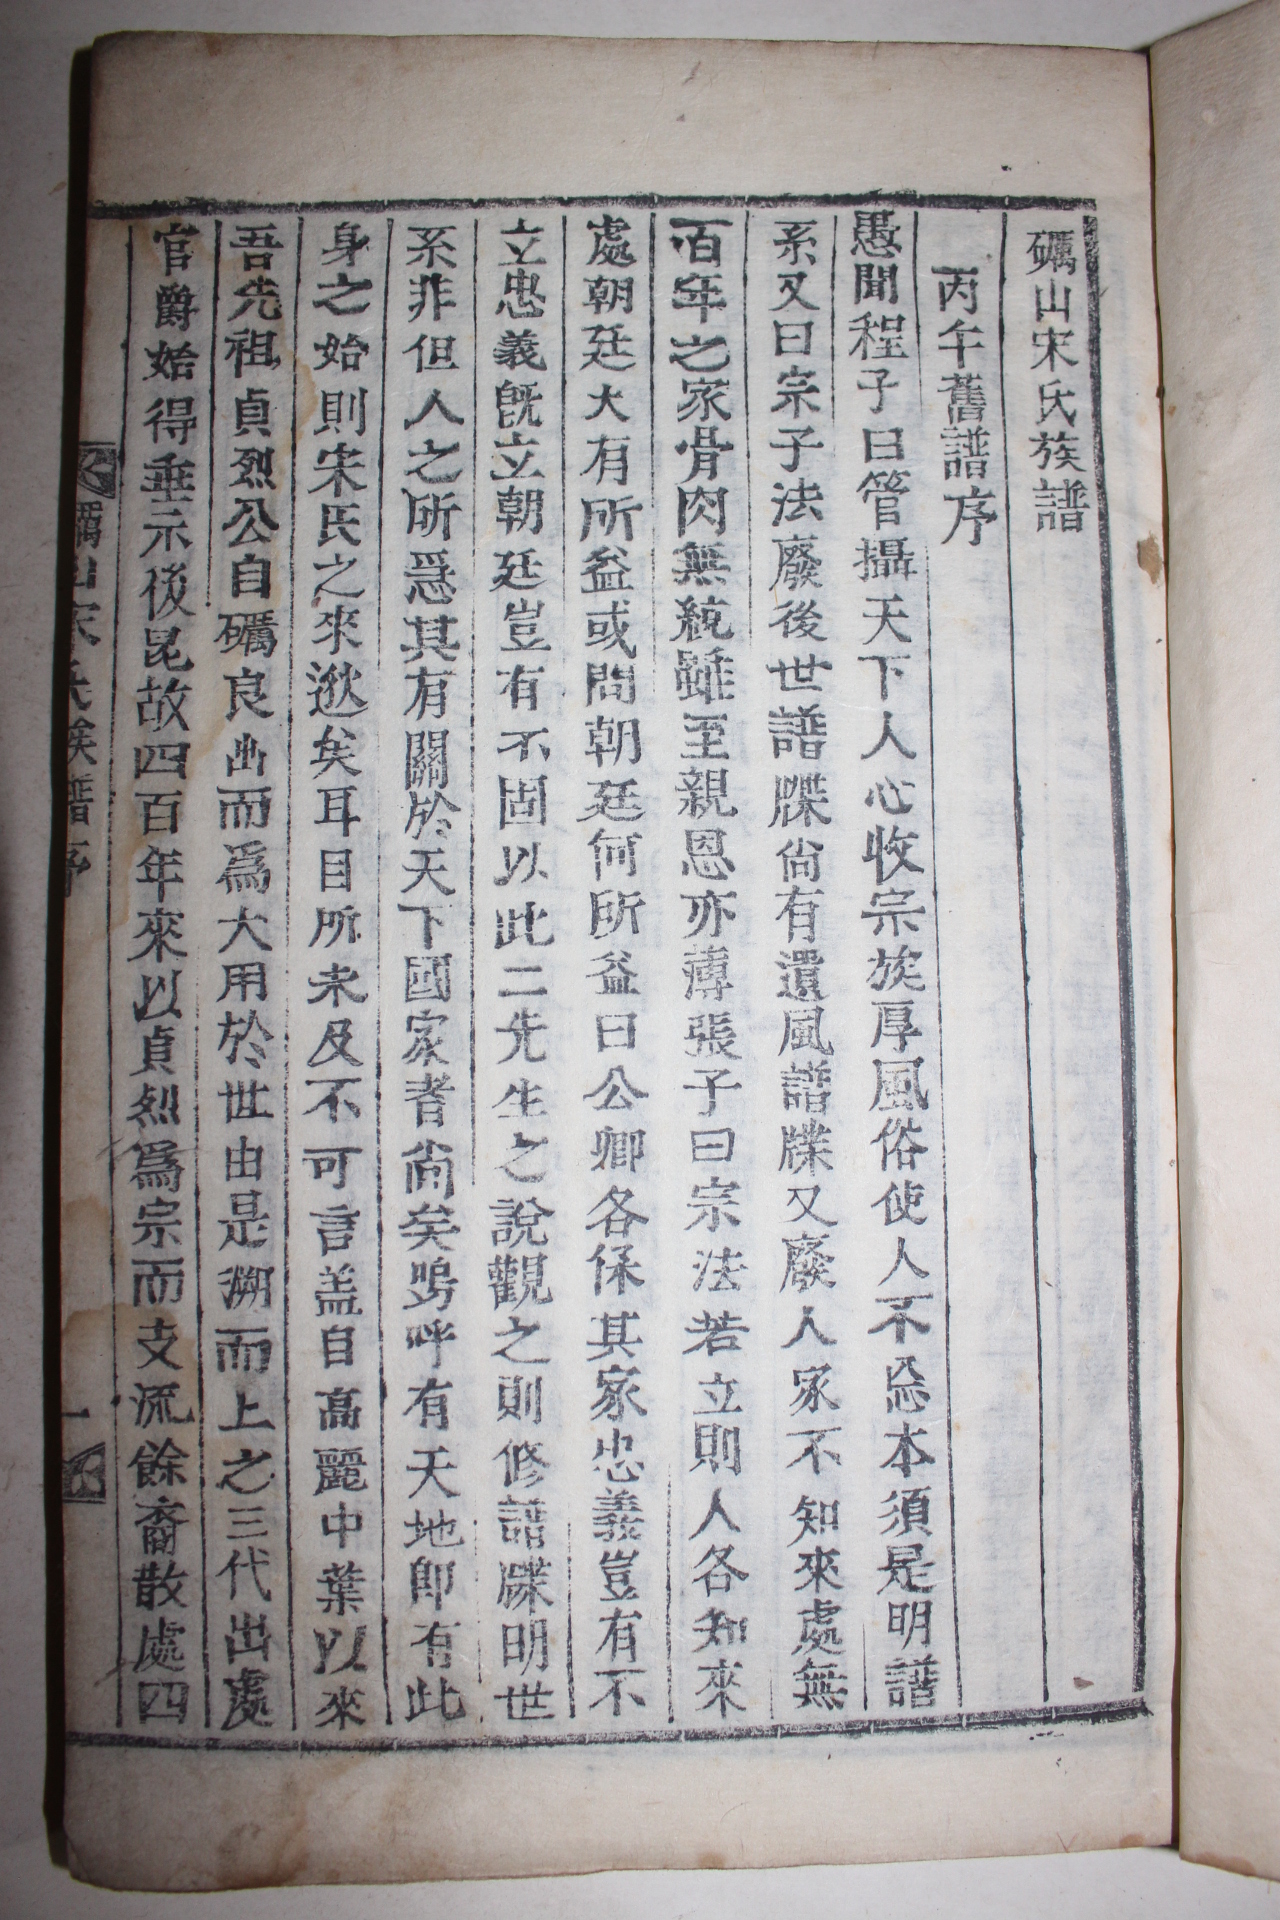 礪山宋氏族譜
丙午舊譜序
愚聞程子曰管攝天下人心收宗族厚風俗使人不忘本須是明譜
系又曰宗子法廢後世譜牒尙有遺風譜牒又廢人家不知來處無
百年之家骨肉無統雖至親恩亦薄張子曰宗法若立則人各知來
處朝廷大有所益或問朝廷何所益曰公卿各保其家忠義豈有不
立忠義旣立朝廷豈有不固以此二先生之說觀之則修譜牒明世
系非但人之所爲其有關於天下國家者尙矣嗚呼有天地卽有此
身之始則宋氏之來逖矣耳目所未及不可言盖自高麗中葉以來
吾先祖貞烈公自礪良出而爲大用於世由是溯而上之三代出處
官爵始得垂示後昆故四百年來以貞烈爲宗而支流餘裔散處四
礪山宋氏族譜序 一